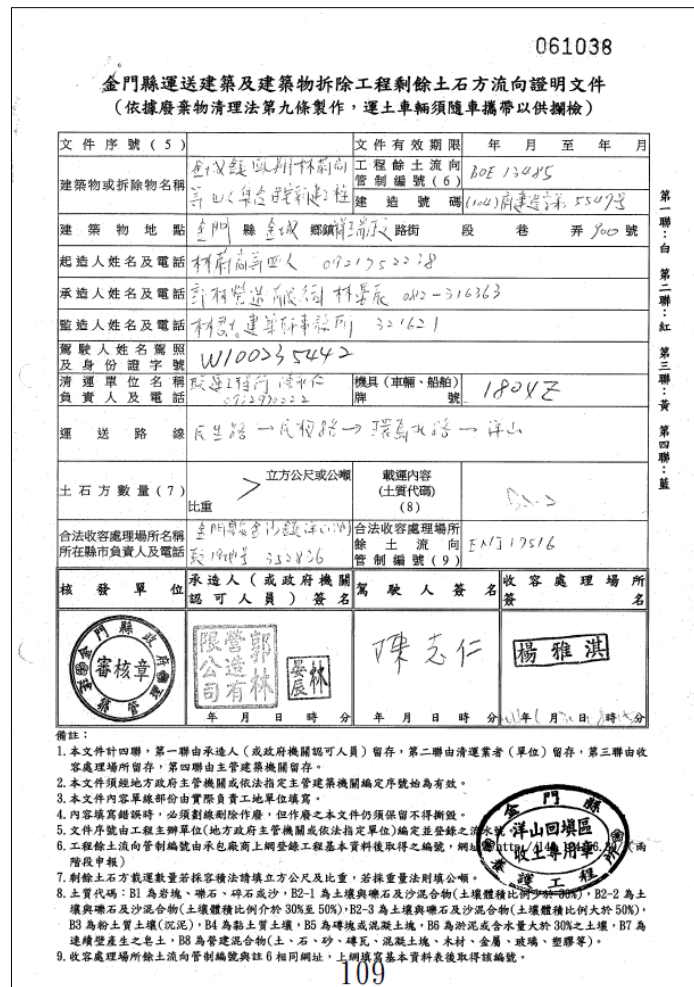 061038
金門縣運送建築及建築物拆除工程剩餘土石方流向證明文件
(依據廢棄物清理法第九條製作,運土車輛須隨車攜帶以供攔檢)
文件序號(5) 文件有效期限 年 月 至 年 月
建築物或拆除物名稱 工程餘土流向管制編號(6) BOE 13485
建造號碼 (104)府建造字第 5547号
建築物地點 金門 縣 金城 鄉鎮 路街 段 巷 弄 900 號
起造人姓名及電話 林蔚商等四人 0921752238
承造人姓名及電話 郭林營造有限公司 林晏辰 082-316363
監造人姓名及電話 建築師事務所 321621
駕駛人姓名駕照及身份證字號 W100235442
清運單位名稱負責人及電話 機具(車輛、船舶)牌號 180YZ
運送路線 民生路→民權路→環島北路→洋山
土石方數量(7) 立方公尺或公噸 比重 載運內容(土質代碼)(8)
合法收容處理場所名稱所在縣市負責人及電話 金門縣金沙鎮 352826 合法收容處理場所餘土流向管制編號(9) ENJ 17516
核發單位 承造人(或政府機關認可人員)簽名 駕駛人簽名 收容處理場所簽名
金門縣政府
審核章
郭林營造有限公司
林晏辰
陳志仁
楊雅淇
年 月 日 時 分 年 月 日 時 分 年 月 日 時 分
第一聯:白 第二聯:紅 第三聯:黃 第四聯:藍
備註:
1.本文件計四聯,第一聯由承造人(或政府機關認可人員)留存,第二聯由清運業者(單位)留存,第三聯由收
容處理場所留存,第四聯由主管建築機關留存。
2.本文件須經地方政府主管機關或依法指定主管建築機關編定序號始為有效。
3.本文件內容單線部份由實際負責工地單位填寫。
4.內容填寫錯誤時,必須劃線刪除作廢,但作廢之本文件仍須保留不得撕毀。
5.文件序號由工程主辦單位(地方政府主管機關或依法指定單位)編定並登錄之流水號
6.工程餘土流向管制編號由承包廠商上網登錄工程基本資料後取得之編號,網址 (兩
階段申報)
7.剩餘土石方載運數量若採容積法請填立方公尺及比重,若採重量法則填公噸。
8.土質代碼:B1 為岩塊、礫石、碎石或沙,B2-1 為土壤與礫石及沙混合物(土壤體積比例少於 30%),B2-2 為土
壤與礫石及沙混合物(土壤體積比例介於 30%至 50%),B2-3 為土壤與礫石及沙混合物(土壤體積比例大於 50%),
B3 為粉土質土壤(沉泥),B4 為黏土質土壤,B5 為磚塊或混凝土塊,B6 為淤泥或含水量大於 30%之土壤,B7 為
連續壁產生之皂土,B8 為營建混合物(土、石、砂、磚瓦、混凝土塊、木材、金屬、玻璃、塑膠等)。
9.收容處理場所餘土流向管制編號與註 6 相同網址,上網填寫基本資料表後取得該編號。
金門縣
洋山回填區
收土專用章
養護工程所
109